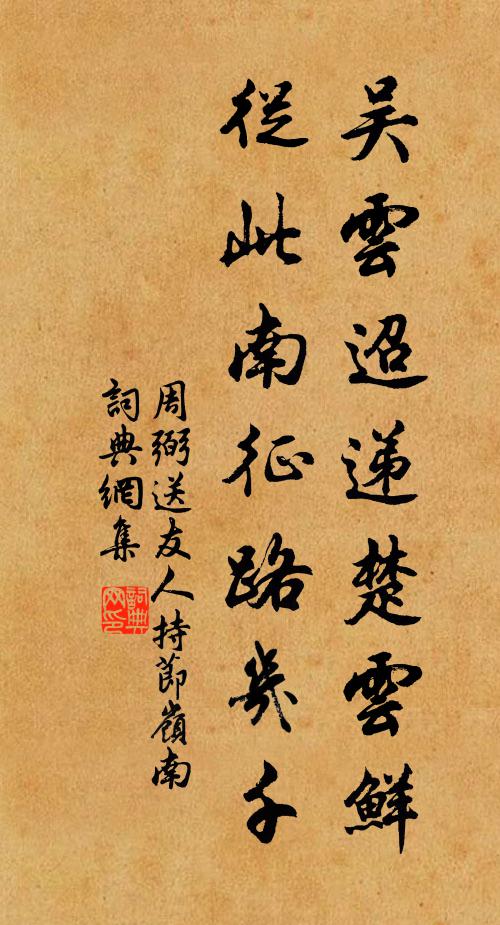 吴雲迢递楚雲鮮
從此南征路幾千
周弼送友人持節嶺南
詞典網集
詞典网印